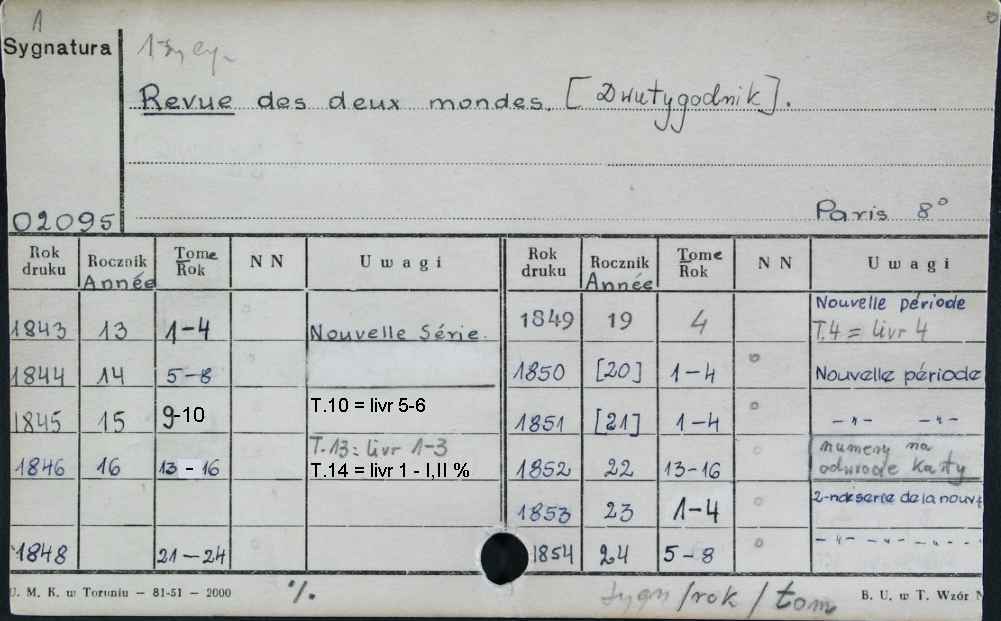 1
Sygnatura
Revue des deux mondes. [Dwutygodnik].
02095
Paris 8°
Rok druku Rocznik Année Tome Rok NN Uwagi Rok druku Rocznik Année Tome Rok NN Uwagi
1843 13 1-4 Nouvelle Série. 1849 19 4 Nouvelle période T.4 = livr 4
1844 14 5-8 1850 [20] 1-4 Nouvelle période
1845 15 9-10 T.10 = livr 5-6 1851 [21] 1-4 -"- -"-
1846 16 13-16 T.13: livr 1-3 T.14 = livr 1 - I,II % 1852 22 13-16 numery na odwrocie Karty
1853 23 1-4 2-nde serie de la nouv
1848 21-24 1854 24 5-8 -"- -"-
U. M. K. w Toruniu – 81-51 – 2000 %. sygn/rok/tom B. U. w T. Wzór N